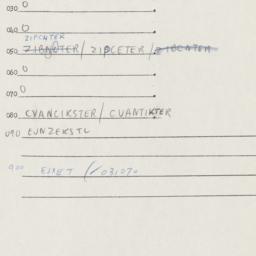 030 0
ZIPCHTER
040 0
050 ZIBCETER / ZIPCETER / ZIBCHTER
060 0
070 0
080 CVANCIKSTER / CVANTIKTER
090 EUNZEKSTL
900 EIKET // 031070